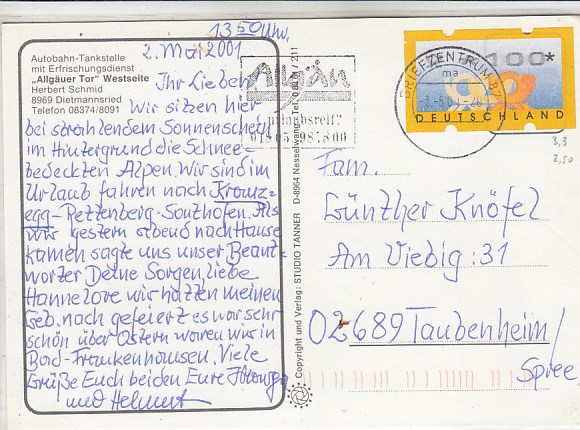 1350 Uhr,
2. Mai 2001
Autobahn-Tankstelle
mit Erfrischungsdienst
„Allgäuer Tor" Westseite
Herbert Schmid
8969 Dietmannsried
Telefon 08374/8091
Ihr Lieben
Wir sitzen hier
bei strahlendem Sonnenschein
im Hintergrund die Schnee-
bedeckten Alpen. Wir sind im
Urlaub fahren nach Kranz-
egg-Rettenberg-Sonthofen. Als
wir gestern abend nach Hause
kamen sagte uns unser Beant-
worter Deine Sorgen, liebe
Hannelore wir hatten meinen
Geb. nach gefeiert es war sehr
schön über Ostern waren wir in
Bad-Frankenhausen. Viele
Grüße Euch beiden Eure
und Helmut
Copyright und Verlag: STUDIO TANNER D-8964 Nesselwang, Tel.
Allgäu
urlaubsreif?
BRIEFZENTRUM
ma
100*
DEUTSCHLAND
3,3
2,50
Fam.
Günther Knöfel
Am Viebig: 31
02689 Taubenheim/
Spree